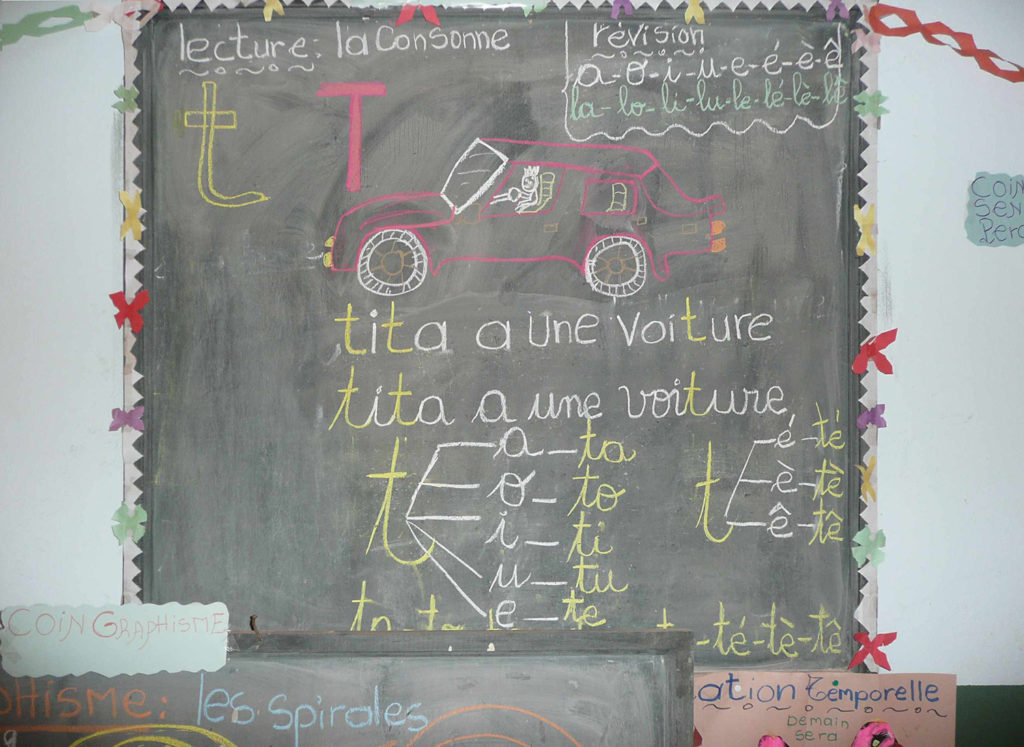 lecture: la Consonne
t T
révision
a-o-i-u-e-é-è-ê
la-lo-li-lu-le-lé-lè-lê
tita a une voiture
tita a une voiture
t
a-ta
o-to
i-ti
u-tu
e-te
t
é-té
è-tè
ê-tê
té-tè-tê
COIN GRAPHISME
PHISME: les spirales
ation temporelle
DEMAIN
sera
COIN
SEN